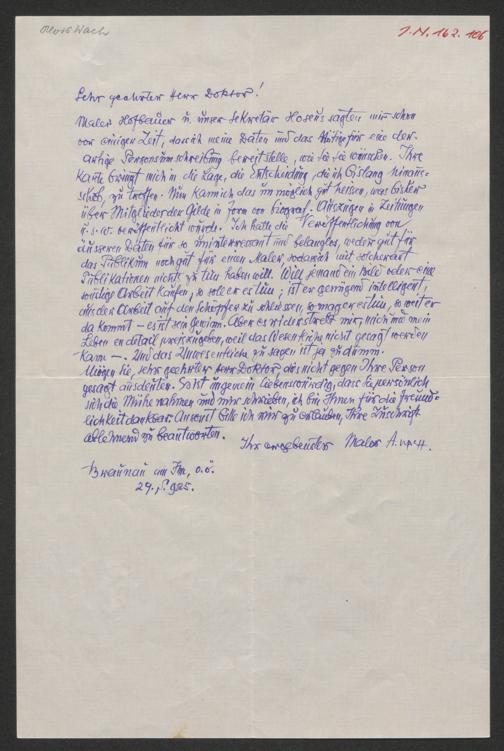 Aloys Wach
I.N. 162.106
Sehr geehrter Herr Doktor!
Maler Hofbauer u. unser Sekretär Hosens sagten mir schon
vor einiger Zeit, dass ich meine Daten und das Nötige für eine der-
artige Personsumschreibung bereitstelle, wie Sie sie wünschen. Ihre
Karte bringt mich in die Lage, die Entscheidung, die ich bislang hinaus-
schob, zu treffen. Nun kann ich das unmöglich gut heissen, was bisher
über Mitglieder der Gilde in Form von biograf. Auszügen in Zeitungen
u.s.w. veröffentlicht wurde. Ich halte die Veröffentlichung von
äusseren Daten für so uninteressant und belanglos, weder gut für
das Publikum noch gut für einen Maler, sodass ich mit solcherart
Publikationen nichts zu tun haben will. Will jemand ein Bild oder eine
sonstige Arbeit kaufen, so soll er es tun; ist er genügend intelligent,
aus der Arbeit auf den Schöpfer zu schliessen, so mag er es tun, soweit er
da kommt – es ist sein Gewinn. Aber es widerstrebt mir, mich und mein
Leben en detail preiszugeben, weil das Wesentliche nicht gesagt werden
kann –. Und das Unwesentliche zu sagen ist ja zu dumm.
Mögen Sie, sehr geehrter Herr Doktor das nicht gegen Ihre Person
gesagt ausdeuten. Es ist ungemein liebenswürdig, dass Sie persönlich
sich die Mühe nahmen und mir schrieben, ich bin Ihnen für die Freund-
lichkeit dankbar. Ansonst bitte ich mir zu erlauben, Ihre Zuschrift
ablehnend zu beantworten.
Ihr ergebender Maler A.
Braunau am Inn, o.ö.
29. 925.